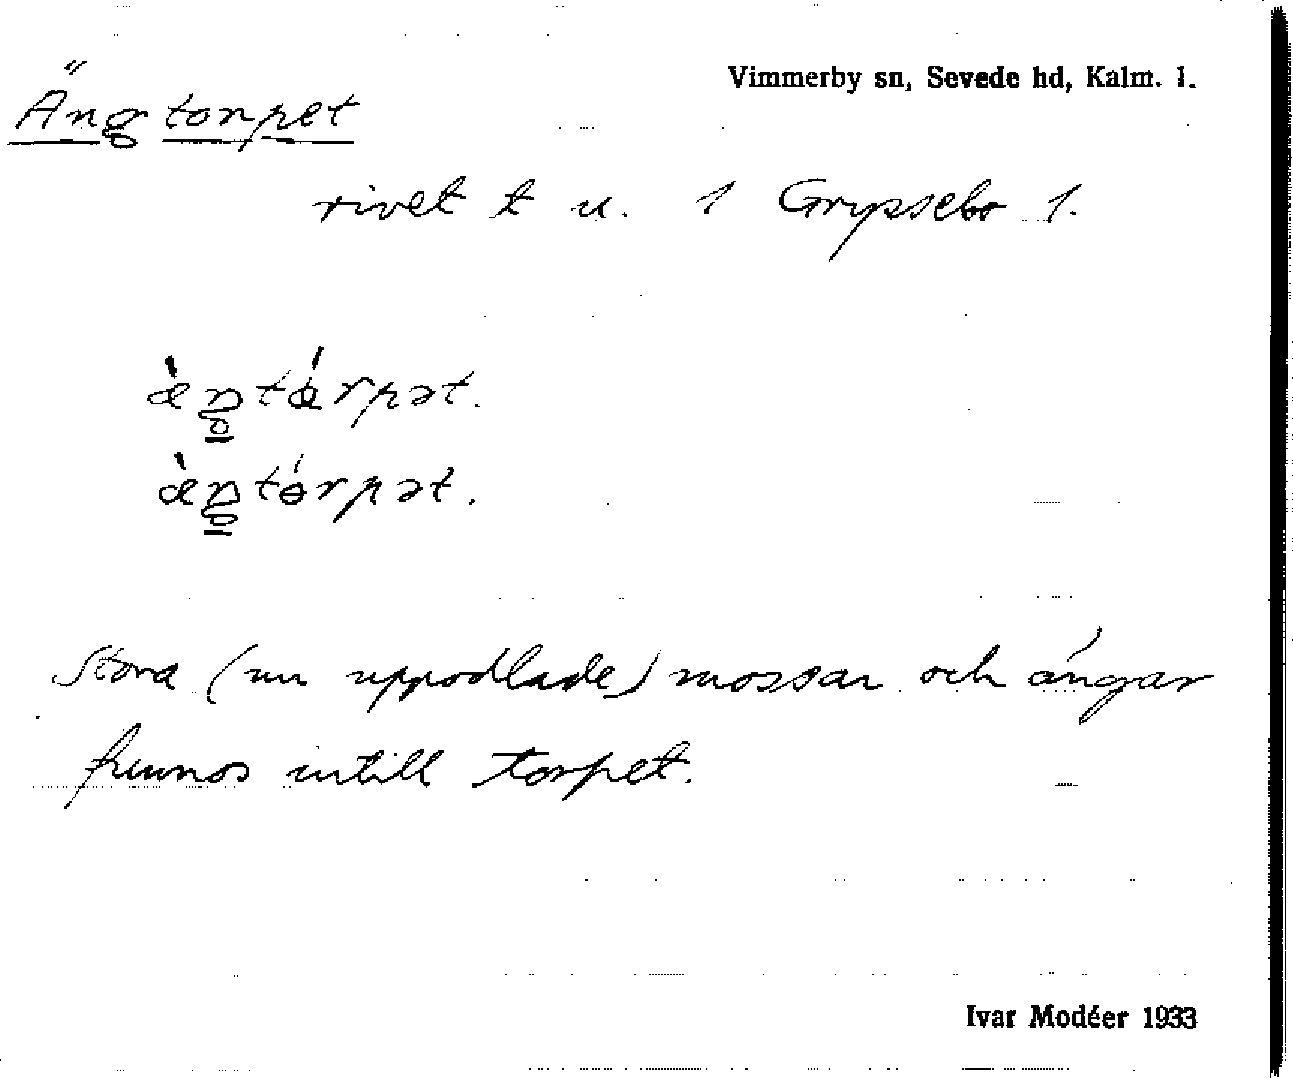 Vimmerby sn, Sevede hd, Kalm. l.
Ängtorpet
rivet t u. 1 Grypsebo 1.
Stora (nu uppodlade) mossar och ängar
funnos intill torpet.
Ivar Modéer 1933